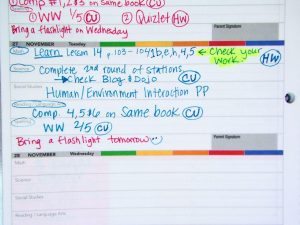 ① Comp #1, 2 & 3 on same book (CU)
① WW (CU) ② Quizlet (HW)
Bring a flashlight on Wednesday
Parent Signature
27 NOVEMBER Tuesday
Learn Lesson 14 p. 103-104 b, e, h, 4, 5 ← Check your work. (HW)
Complete 2nd round of stations
→ Check Blog & Dojo (CU)
Social Studies
Human/Environment Interaction PP
Comp. 4, 5 & 6 on Same book (CU)
WW 2/5 (CU)
Bring a flashlight tomorrow
Parent Signature
28 NOVEMBER Wednesday
Math
Science
Social Studies
Reading / Language Arts